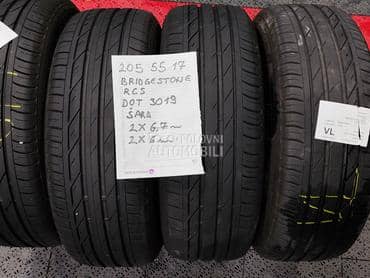 205 55 17
BRIDGESTONE
RCS
DOT 3019
ŠARA
2X6,7~
2X6~
POLOVNI
AUTOMOBILI
VL